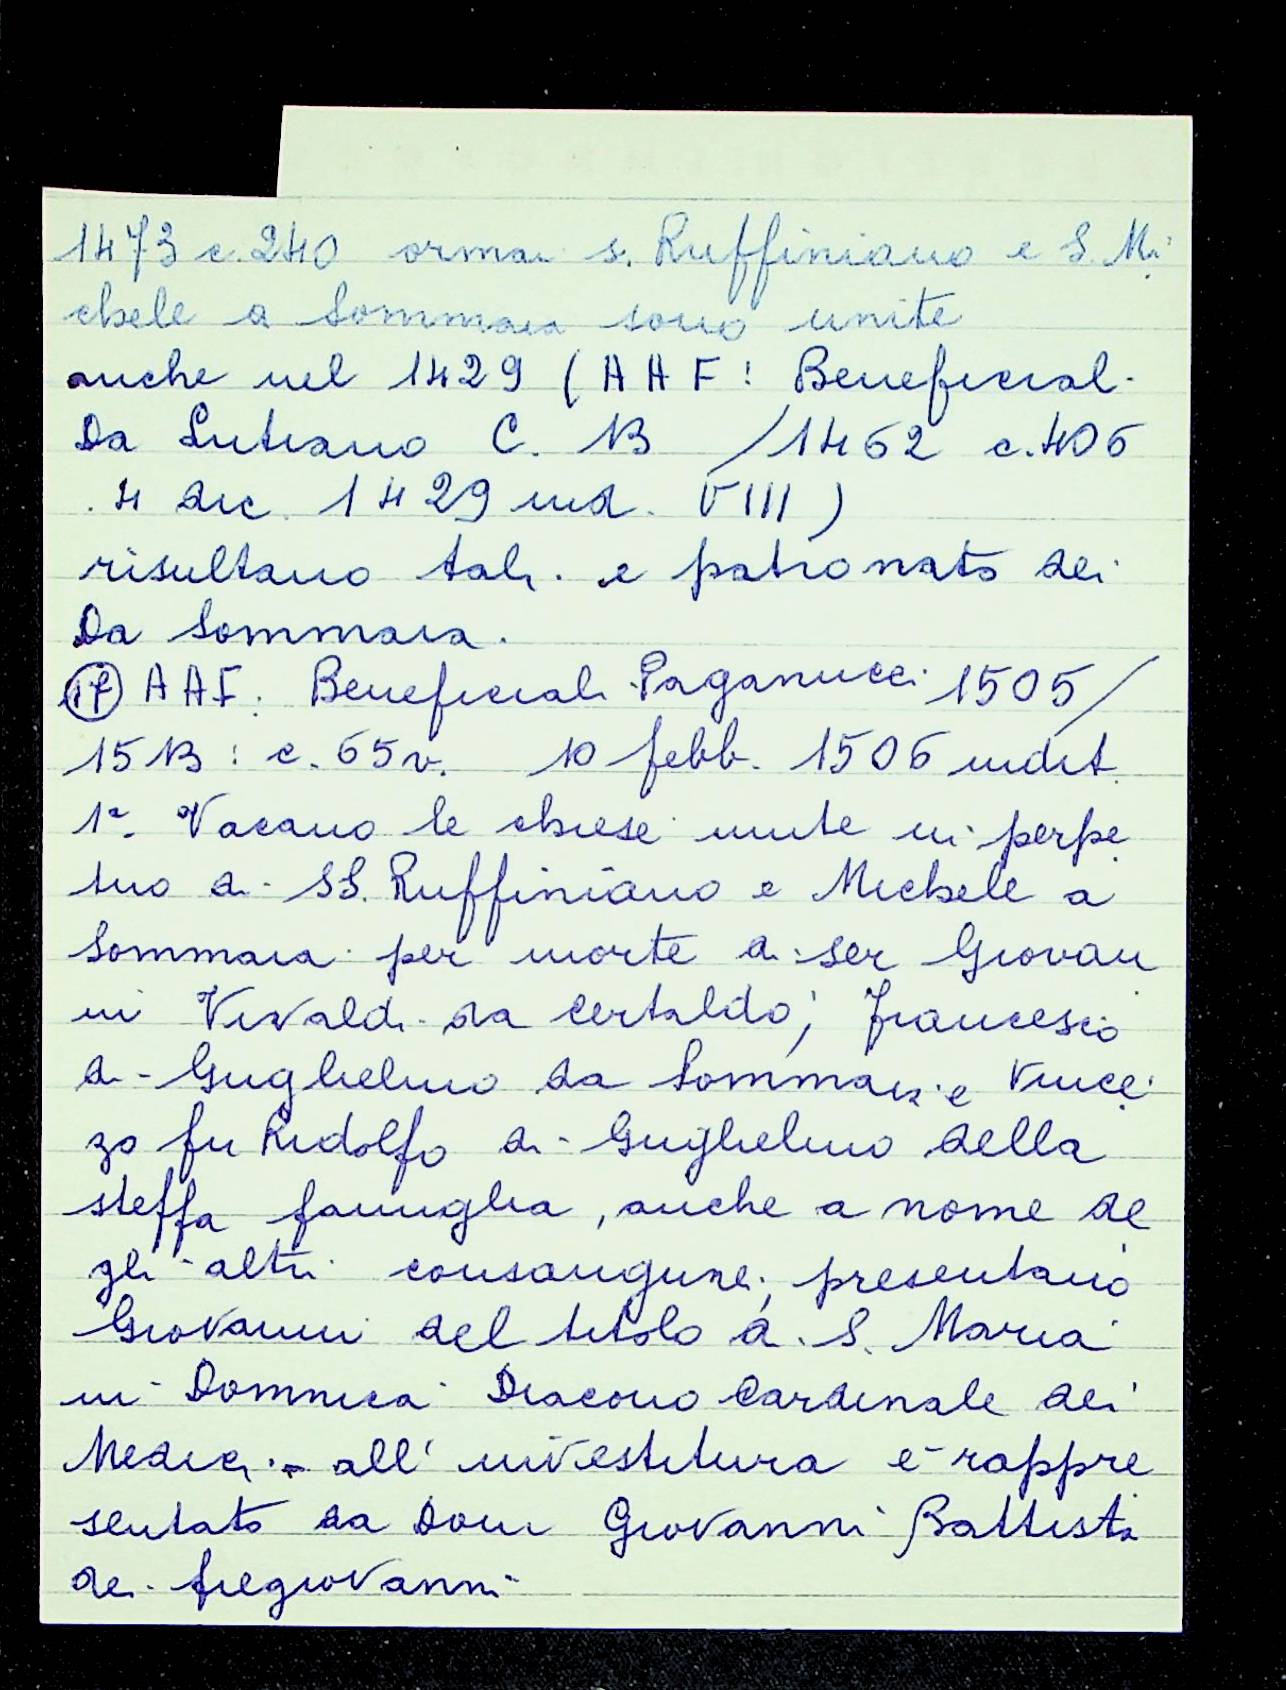 1473 c. 240 ormai s. Ruffiniano e S. Mi
chele a Sommaia sono unite
anche nel 1429 (AAF: Beneficial.
Da Lutiano C. 13 /1462 c. 406
. 4 dic. 1429 ind. VIII)
risultano tali. e patronato dei
Da Sommaia.
17 AAF. Beneficiali Paganucci 1505/
1513: c. 65v. 10 febb. 1506 indit.
1a. Vacano le chiese unite in perpe
tuo di SS. Ruffiniano e Michele a
Sommaia per morte di ser Giovan
ni Vivaldi da Certaldo; Francesco
di Guglielmo da Sommaia e Vincen
zo fu Ridolfo di Guglielmo della
steffa famiglia, anche a nome de
gli altri consanguinei, presentano
Giovanni del titolo di S. Maria
in Domnica Diacono Cardinale dei
Medici - all' investitura e rappre
sentato da Dom Giovanni Battista
dei